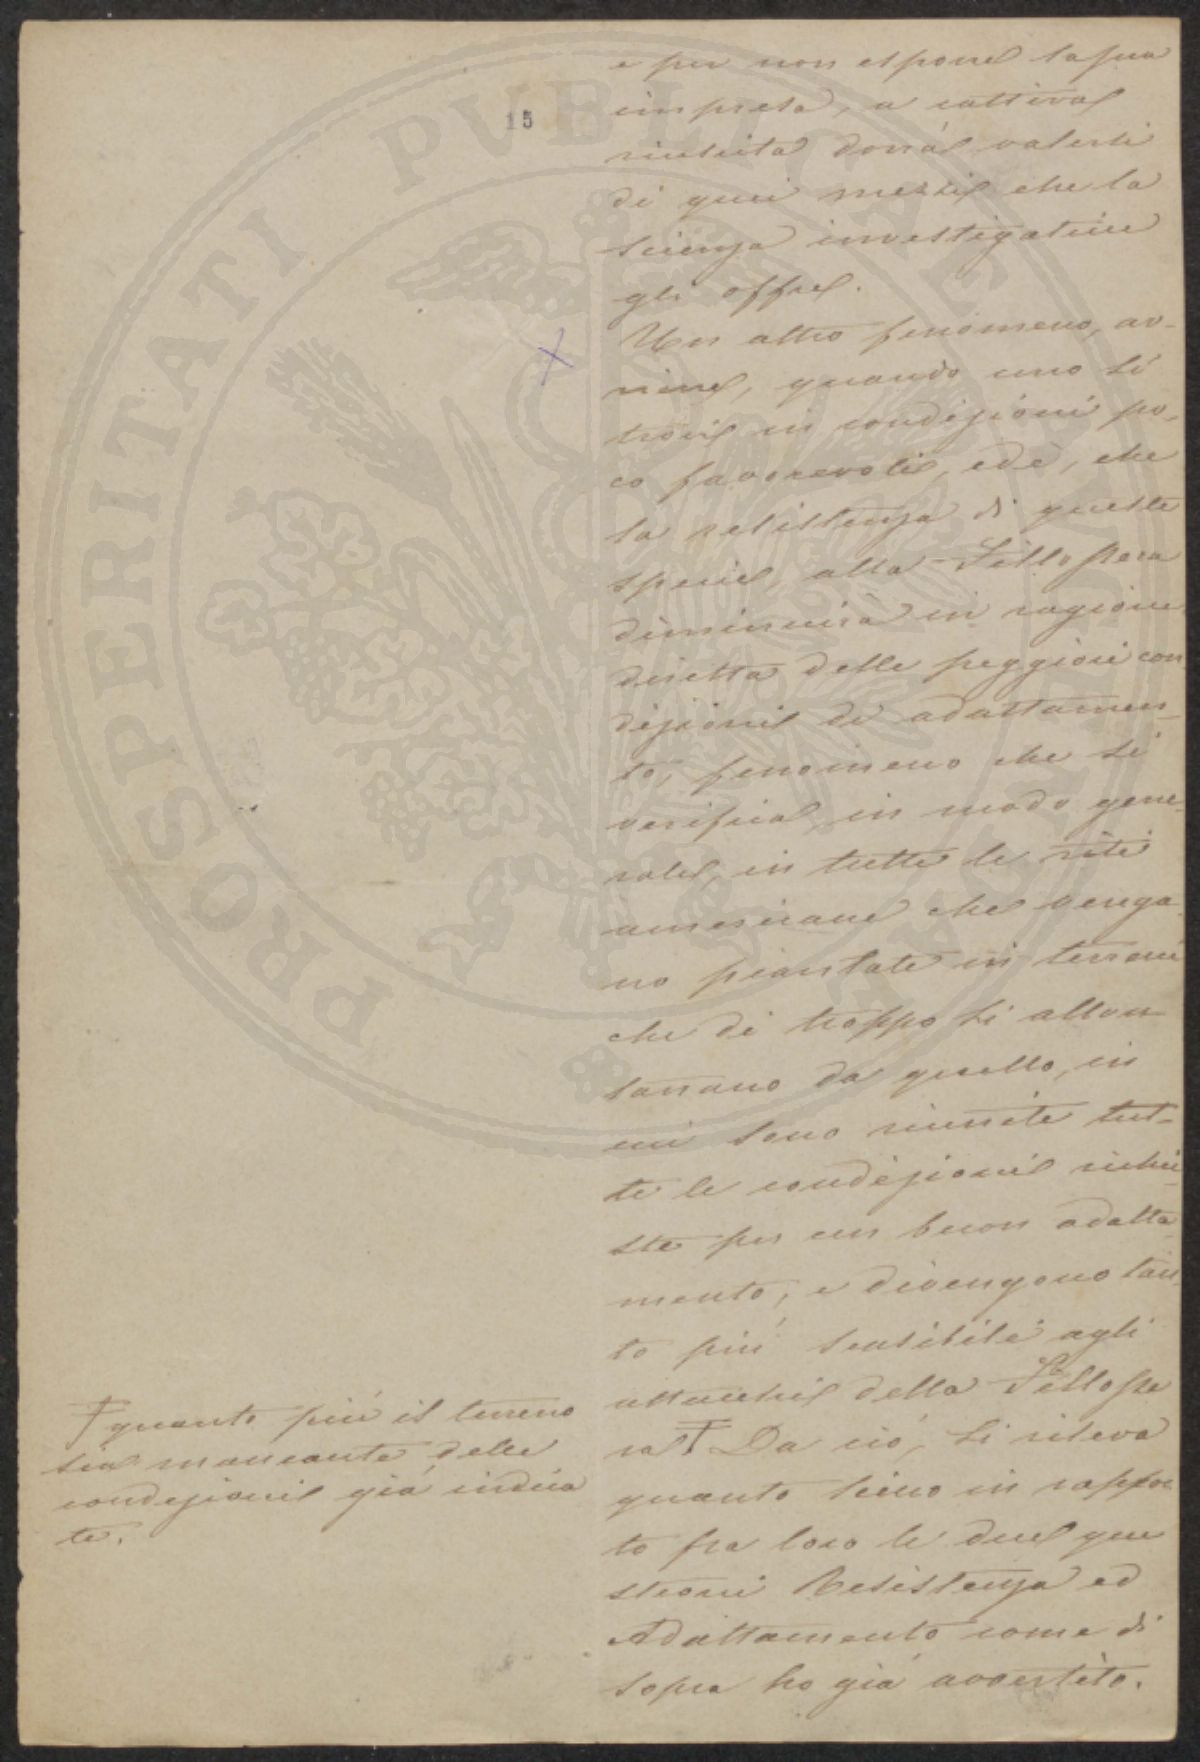 15
e per non esporre la sua
impresa, a cattiva
riuscita dovrà valersi
di quei mezzi che la
scienza investigatrice
gli offre.
Un altro fenomeno, av-
viene, quando uno si
trovi in condizioni po-
co favorevoli, ed è, che
la resistenza di queste
specie, alla Fillossera
diminuirà in ragione
diretta delle peggiori con
dizioni di adattamen-
to, fenomeno che si
verifica, in modo gene-
rale, in tutte le viti
americane che venga
no piantate in terreni
che di troppo si allon-
tanano da quello, in
cui sono riunite tut-
te le condizioni richie-
ste per un buon adatta
mento, e divengono tan-
to più sensibili agli
attacchi della Fillosse
ra Ŧ Da ciò, si rileva
quanto sieno in rappor
to fra loro le due que
stioni Resistenza ed
Adattamento come di
sopra ho già avvertito.
Ŧ quanto più il terreno
sia mancante delle
condizioni già indica
te.
PROSPERITATI PUBLICAE AUGENDAE